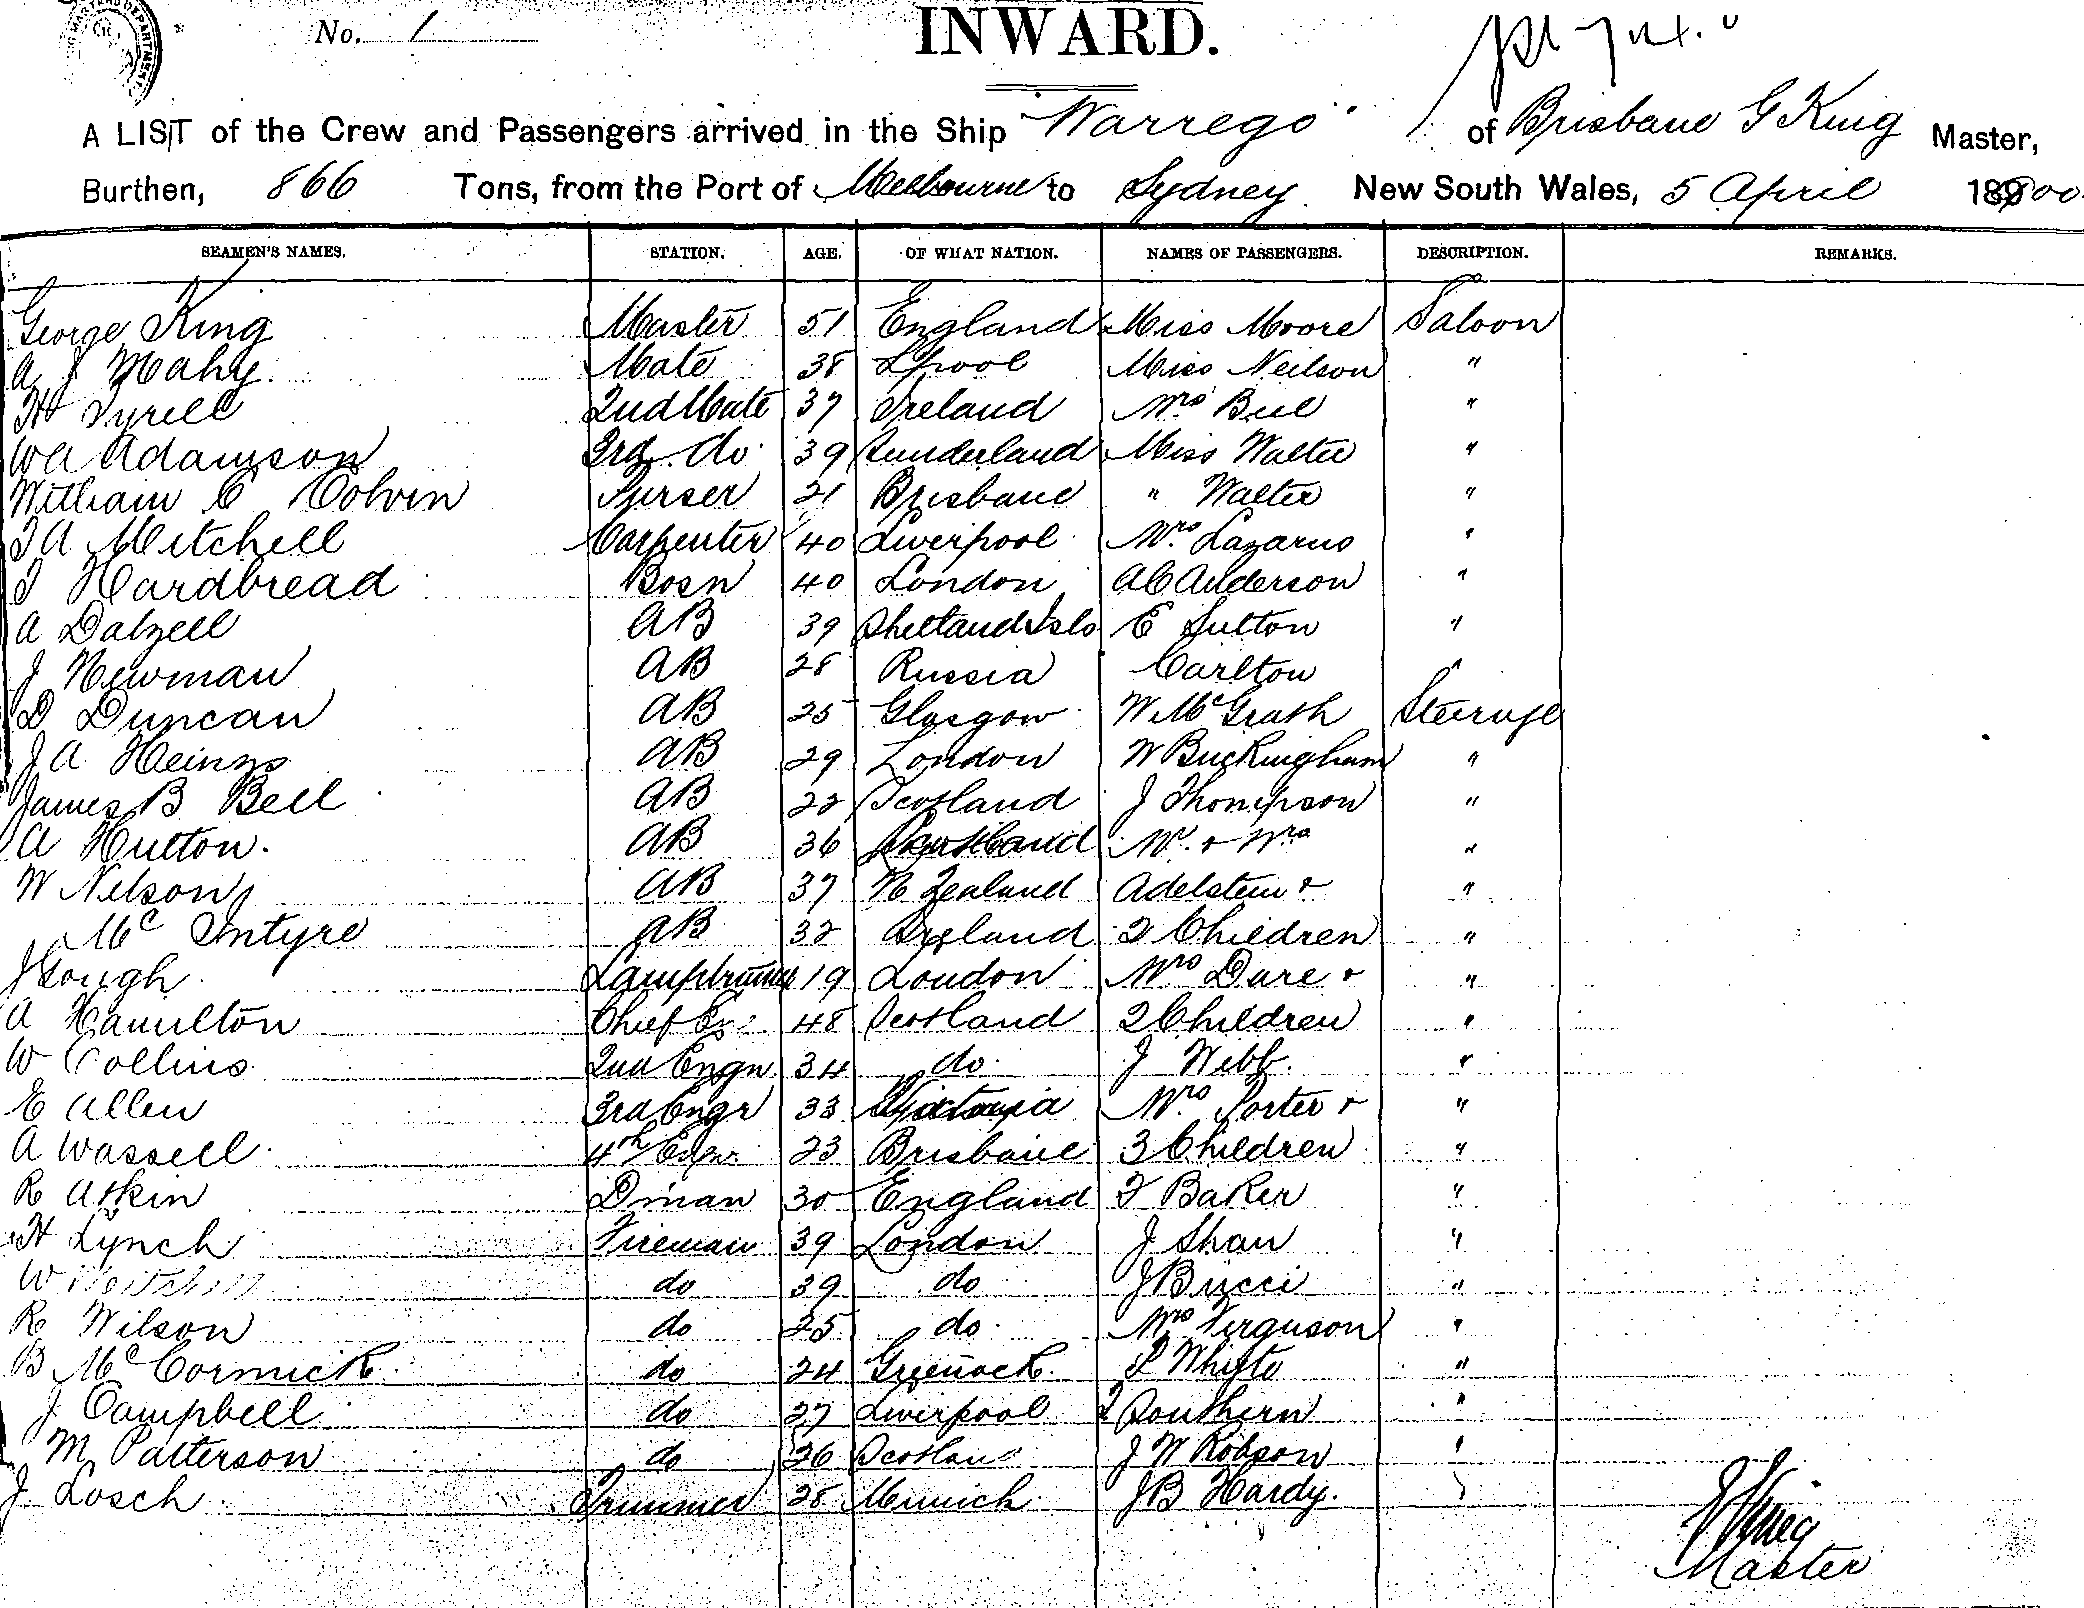 No. 1
INWARD.
A LIST of the Crew and Passengers arrived in the Ship "Warrego" of Brisbane G King Master,
Burthen, 866 Tons, from the Port of Melbourne to Sydney New South Wales, 5 April 1900
SEAMEN'S NAMES. STATION. AGE. OF WHAT NATION. NAMES OF PASSENGERS. DESCRIPTION. REMARKS.
George King Master 51 England Miss Moore Saloon
A J Mahy Mate 38 Lpool Miss Neilson "
H Tyrell 2nd Mate 37 Ireland Mrs Bull "
WA Adamson 3rd do 39 Sunderland Miss Walter "
William C Colvin Purser 21 Brisbane " Walter "
T A Mitchell Carpenter 40 Liverpool Mrs Lazarus "
T Hardbread Bosn 40 London AC Anderson "
A Dalzell AB 39 Shetland Isls E Sutton "
J Newman AB 28 Russia Carlton "
D Duncan AB 25 Glasgow W McGrath Steerage
J A Heinzs AB 29 London W Buckingham "
James B Bell AB 22 Scotland J Thompson "
A Hutton. AB 36 Mr & Mrs "
W Nelson AB 37 N Zealand Adelstein & "
McIntyre AB 32 Ireland 2 Children "
J Gough Lamptrimmer 19 London Mrs Dare & "
A Hamilton Chief Er 48 Scotland 2 Children "
W Collins 2nd Engr 34 do J Webb. "
E Allen 3rd Engr 33 Victoria Mrs Porter & "
A Wassell 4th Engr 23 Brisbane 3 Children "
R Atkin Dman 30 England T Baker "
H Lynch Fireman 39 London J Shaw "
W do 39 do J Bucci "
R Wilson do 25 do Mrs Ferguson "
B McCormick do 24 Greenock L Whyte "
J Campbell do 27 Liverpool Southern "
M Patterson do 26 Scotland J W Robson "
J Losch Trimmer 28 Munich J B Hardy. "
G King
Master